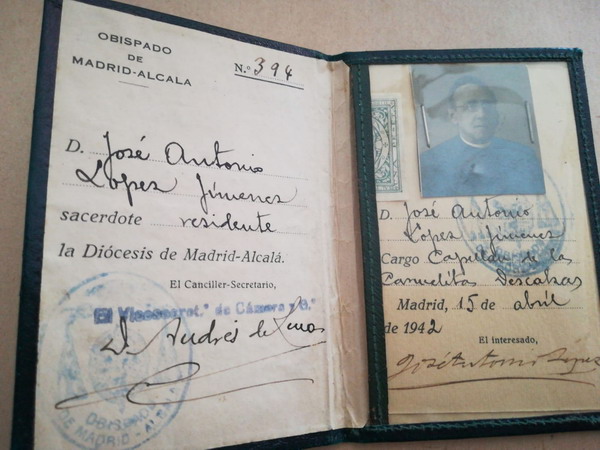 OBISPADO
DE
MADRID-ALCALA
N.º 394
D. José Antonio
López Jiménez
sacerdote residente
la Diócesis de Madrid-Alcalá.
El Canciller-Secretario,
El Vicesecret.º de Cámara y G.º
D. Andrés de Lucas
OBISPADO
DE MADRID - ALCALA
D. José Antonio
López Jiménez
Cargo Capellán de las
Carmelitas Descalzas
Madrid, 15 de abril
de 1942
El interesado,
José Antonio López